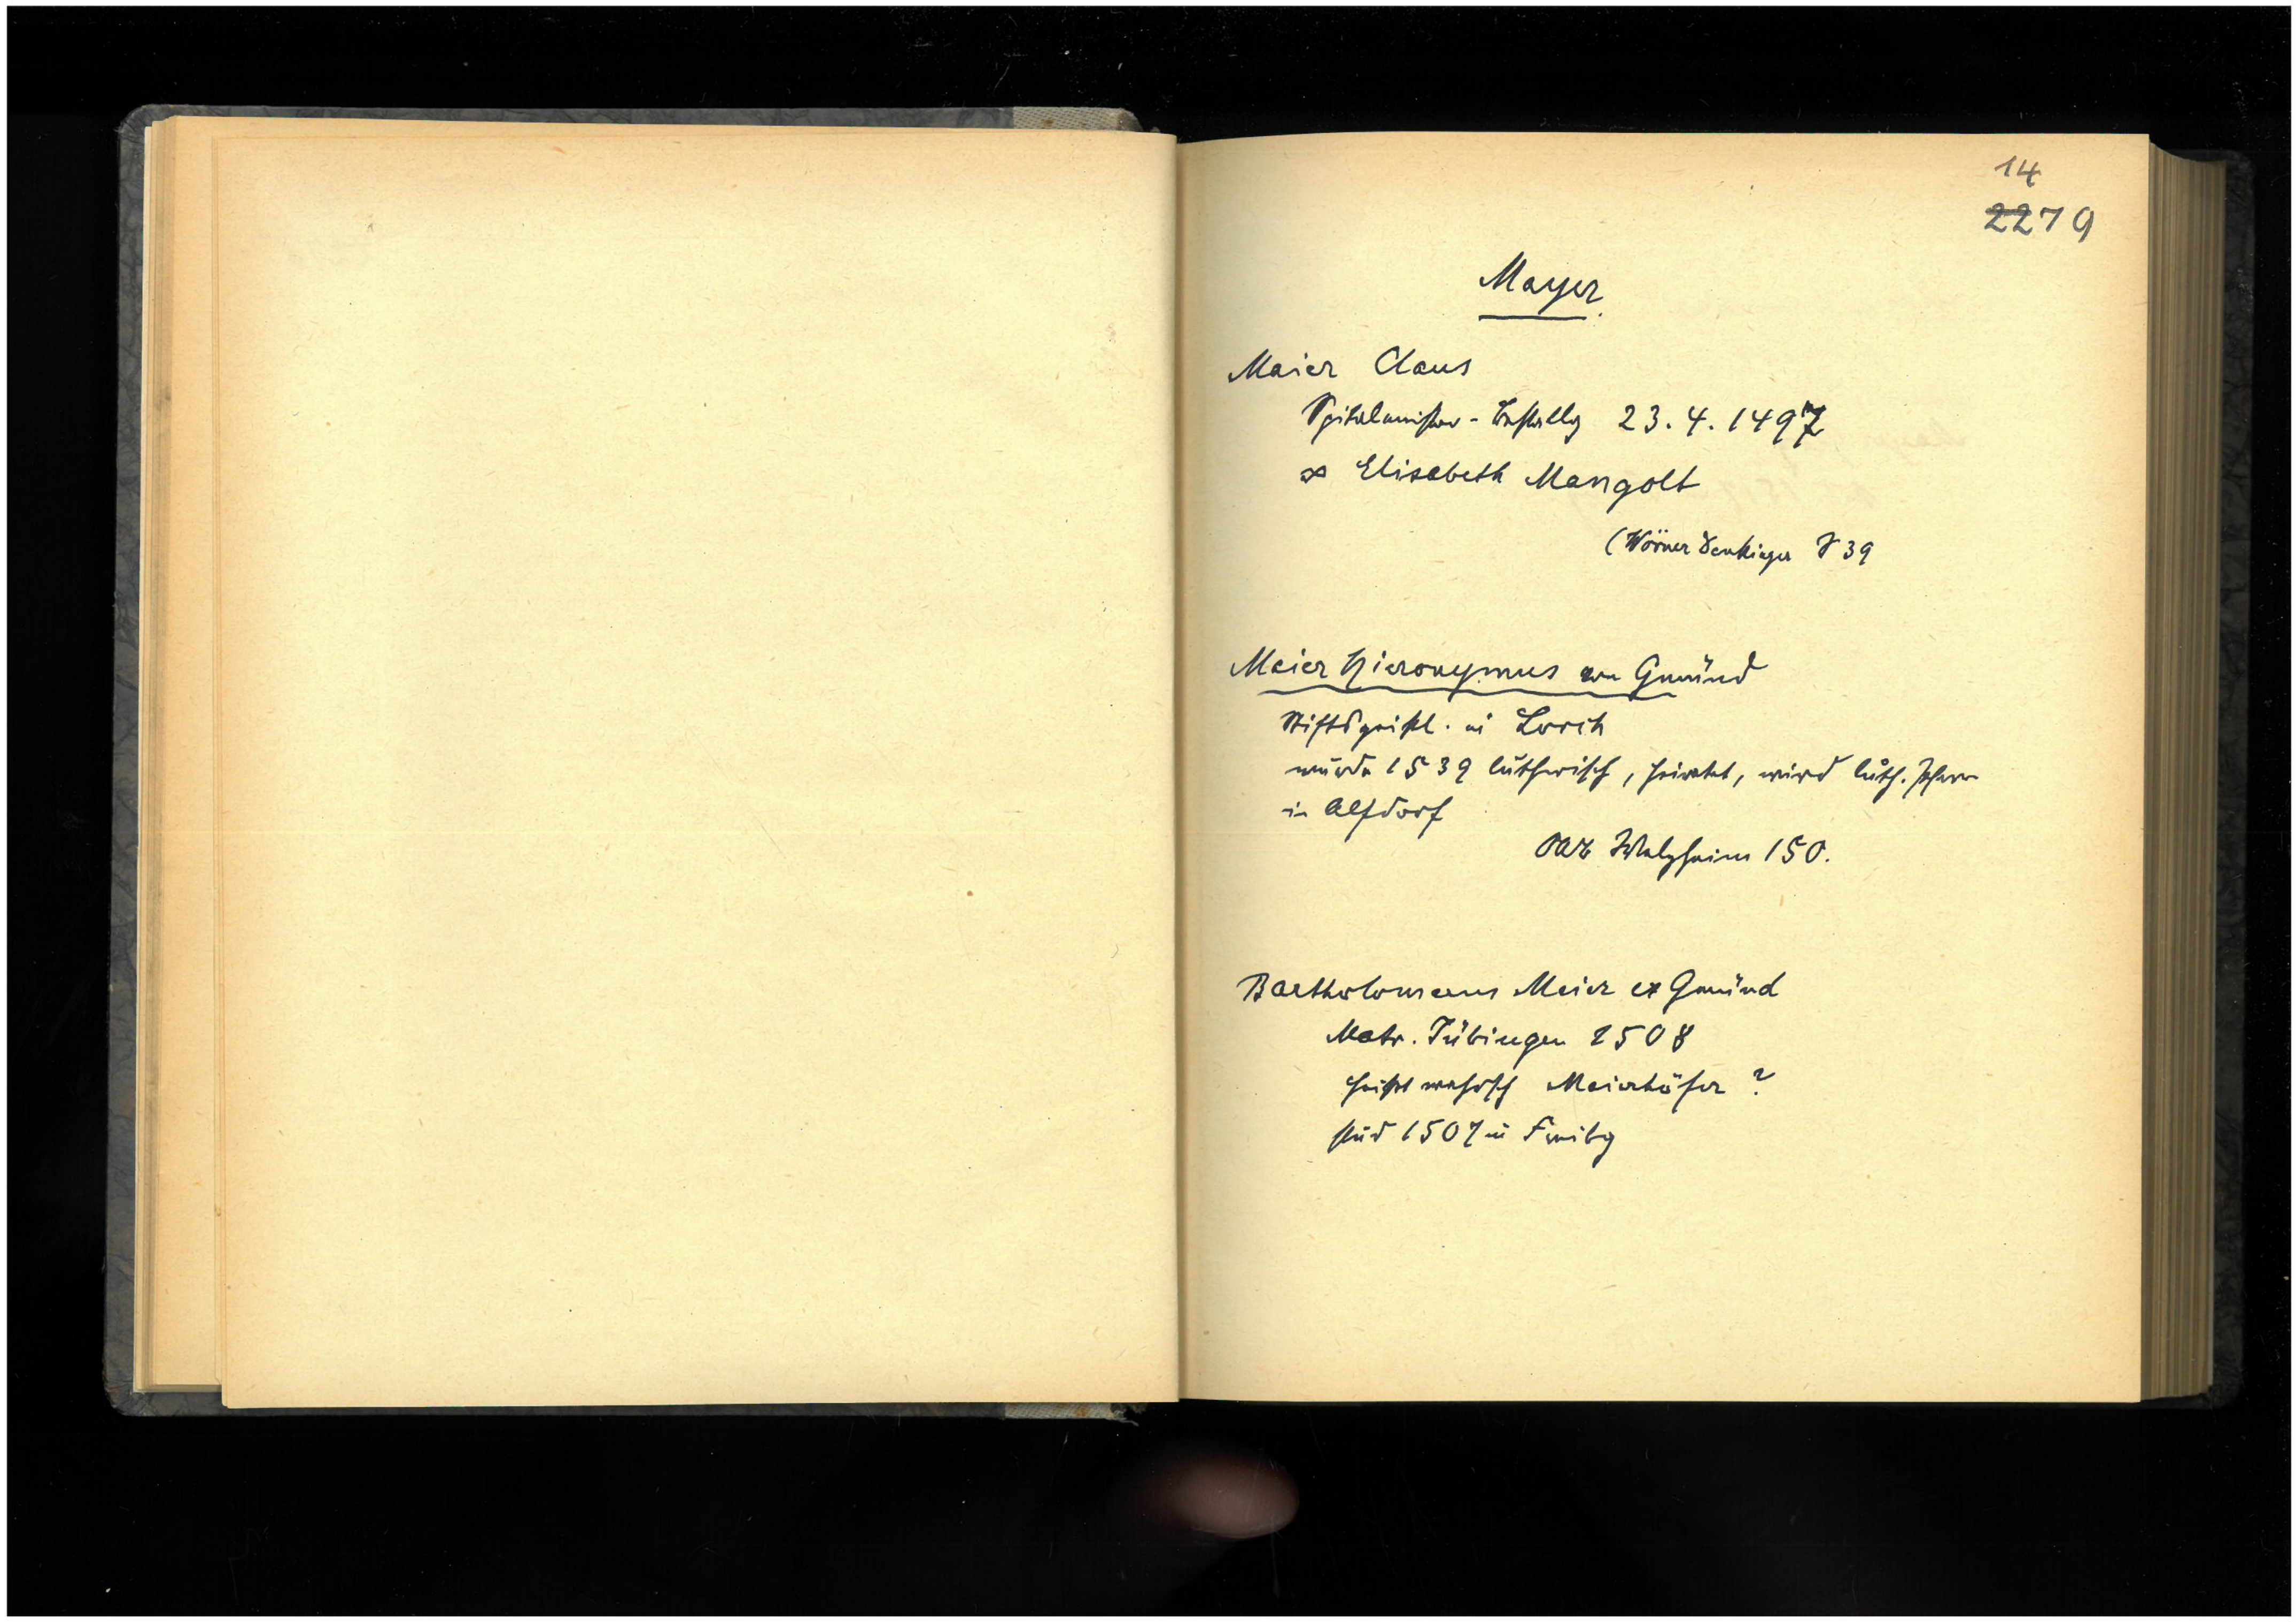 14
2279
Mayer
Maier Claus
Spitalmeister-Bestallg 23.4.1497
∞ Elisabeth Mangolt
(Wörner Denkinger S 39
Meier Hieronymus von Gmünd
Stiftsgeistl. in Lorch
wurde 1539 lutherisch, heiratet, wird luth. Pfarrer
in Alfdorf
OAB Welzheim 150.
Bartholomeus Meier ex Gmünd
Matr. Tübingen 1508
heisst wahrsch Meierhöfer ?
stud 1507 in Freibg